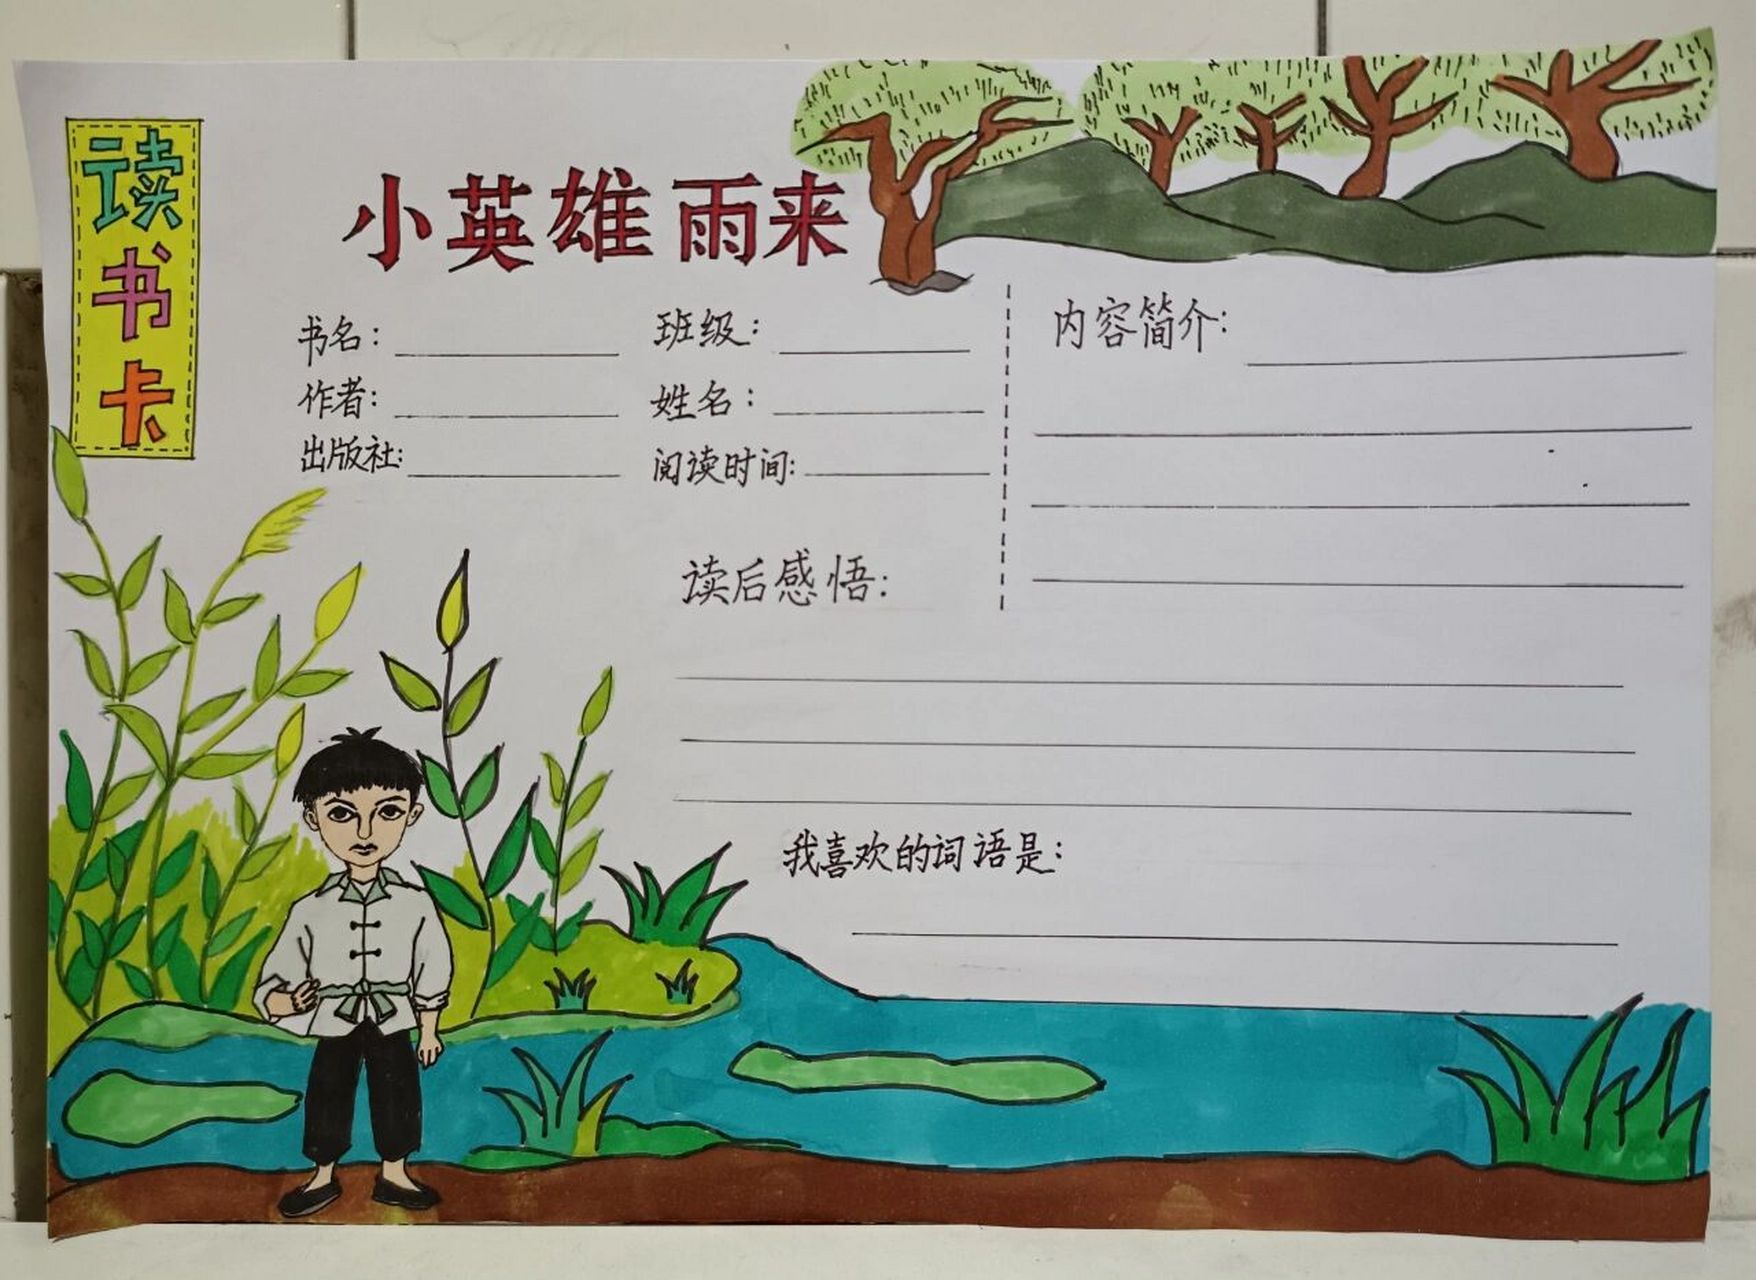 读书卡
小英雄雨来
书名：
班级：
作者：
姓名：
出版社：
阅读时间：
内容简介：
读后感悟：
我喜欢的词语是：